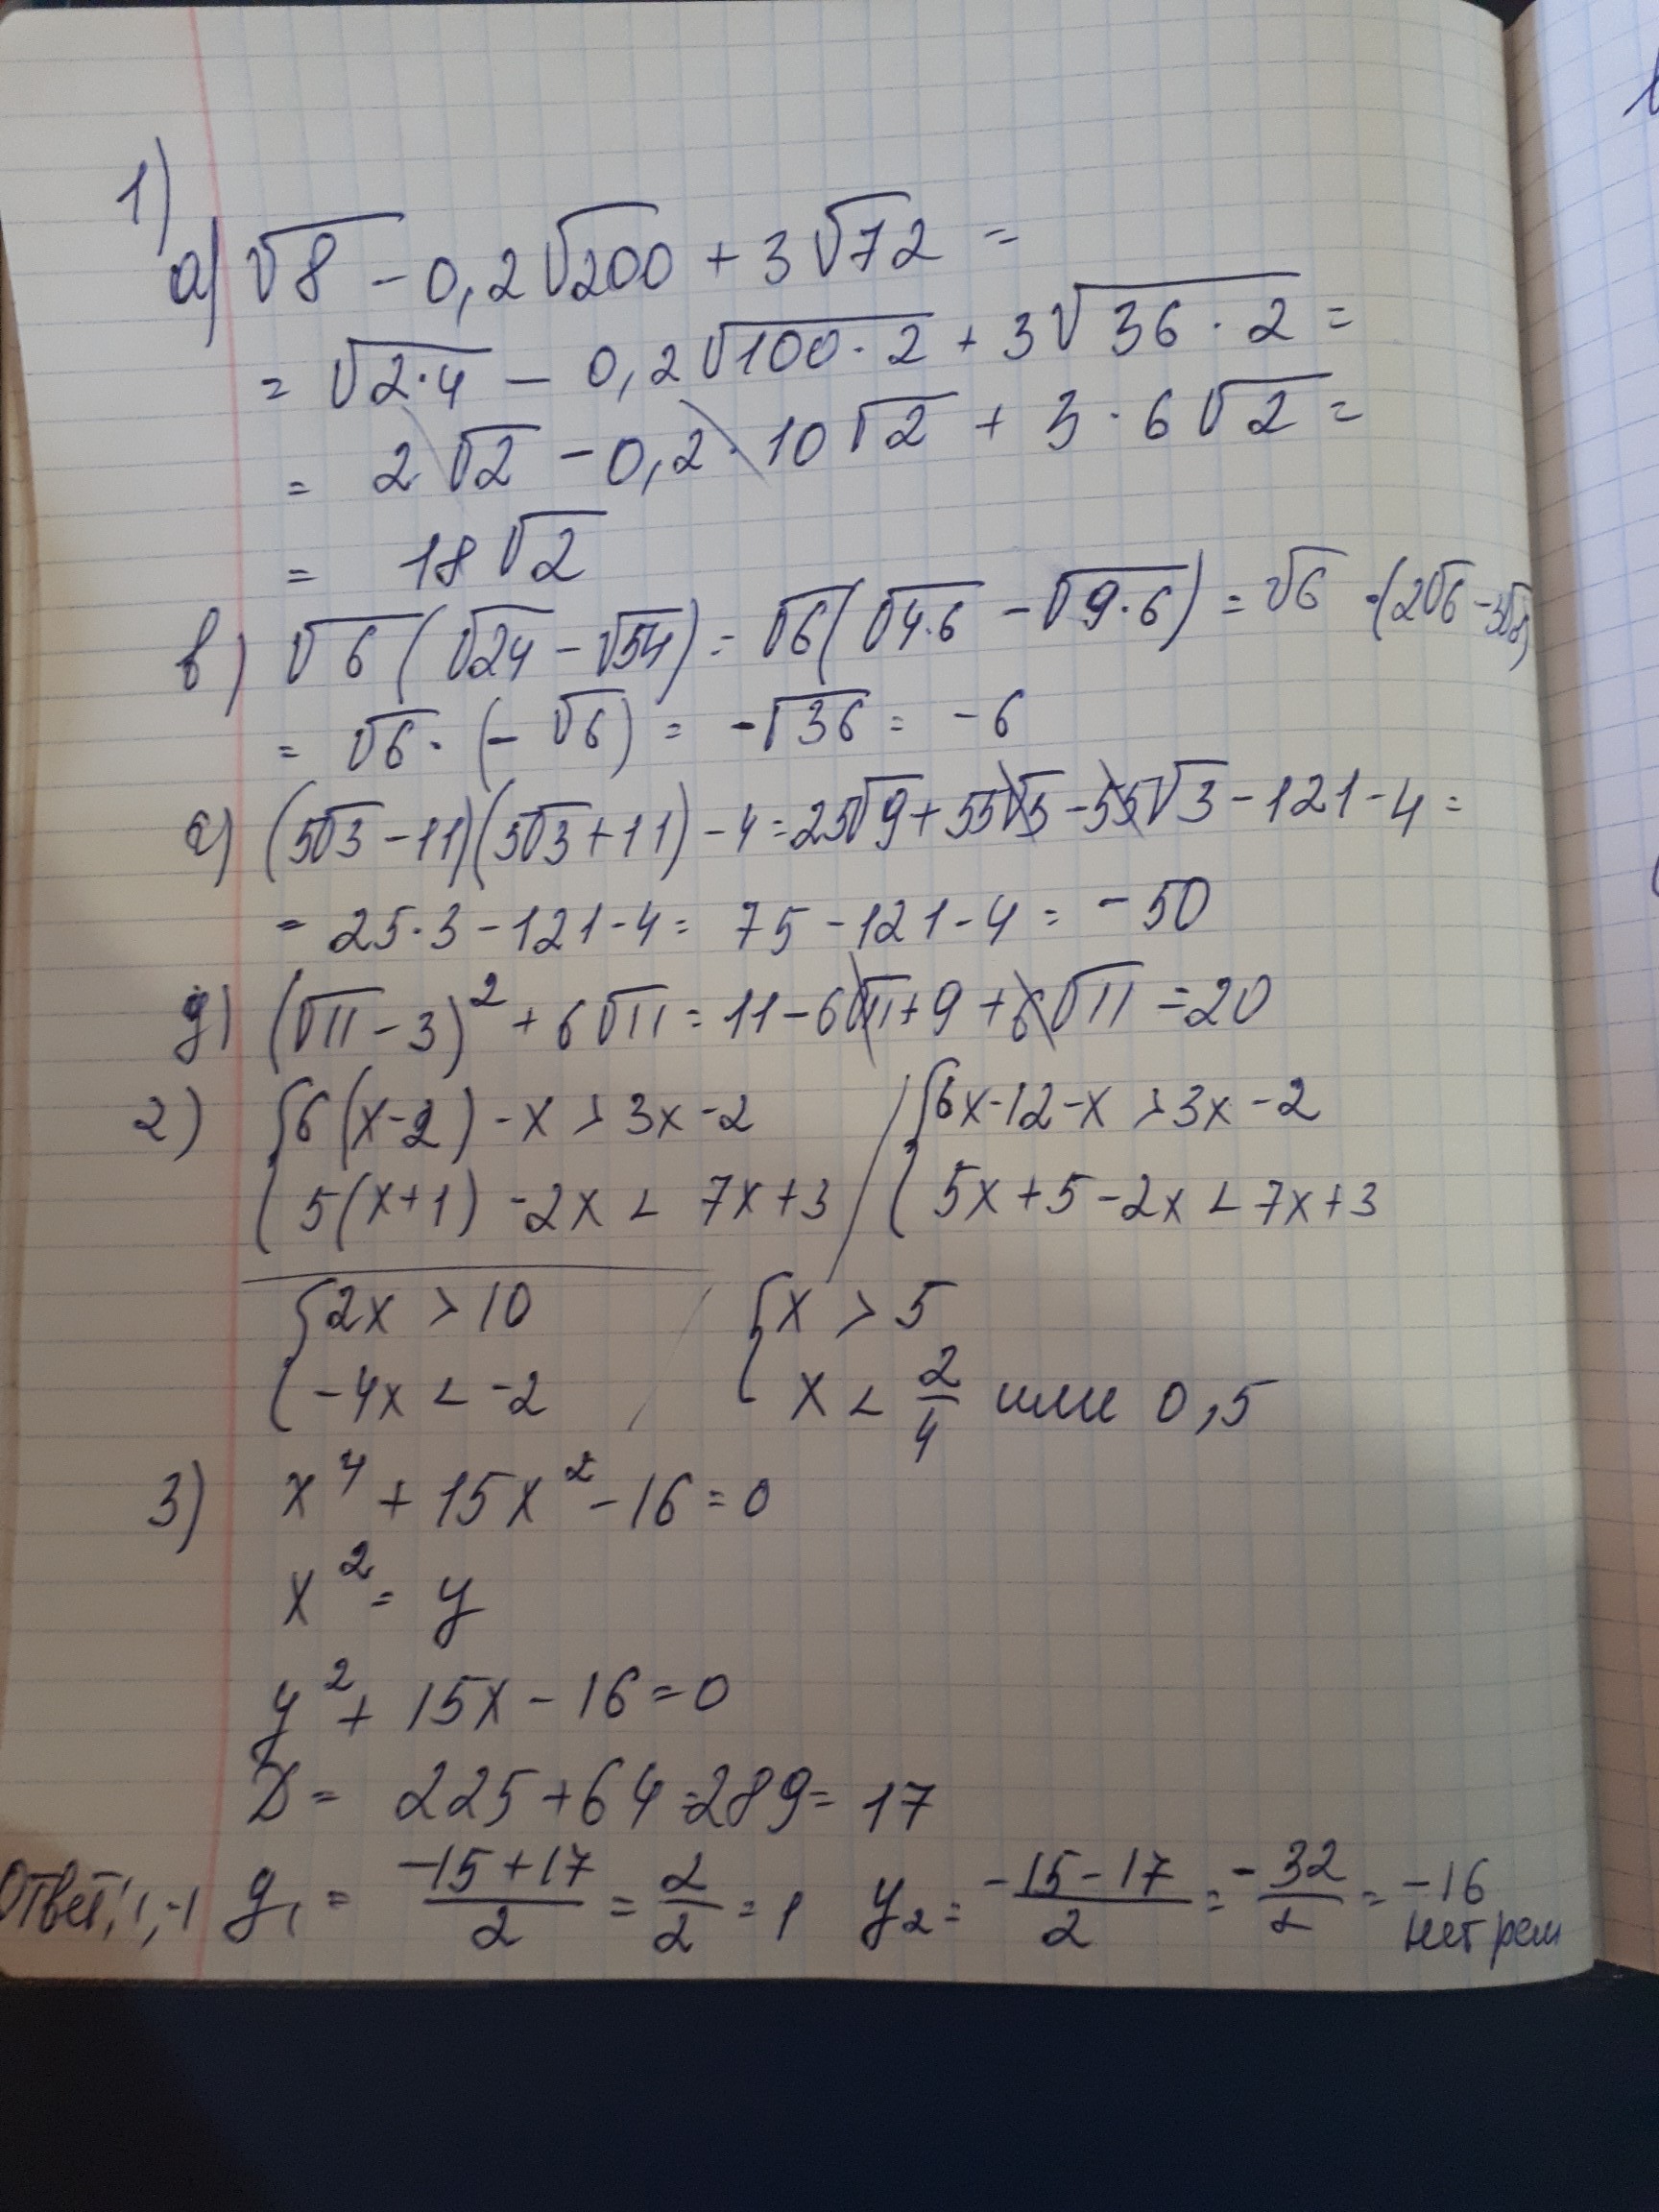 1)
а) √8 - 0,2√200 + 3√72 =
= √2·4 - 0,2√100·2 + 3√36·2 =
= 2√2 - 0,2·10√2 + 3·6√2 =
= 18√2
в) √6(√24 - √54) = √6(√4·6 - √9·6) = √6·(2√6 - 3√6)
= √6·(-√6) = -√36 = -6
с) (5√3 - 11)(5√3 + 11) - 4 = 25√9 + 55√3 - 55√3 - 121 - 4 =
= 25·3 - 121 - 4 = 75 - 121 - 4 = -50
д) (√11 - 3)² + 6√11 = 11 - 6√11 + 9 + 6√11 = 20
2) { 6(x-2) - x > 3x - 2 / { 6x - 12 - x > 3x - 2
5(x+1) - 2x < 7x + 3 / 5x + 5 - 2x < 7x + 3
{ 2x > 10 / { x > 5
-4x < -2 / x < 2/4 или 0,5
3) x⁴ + 15x² - 16 = 0
x² = y
y² + 15x - 16 = 0
D = 225 + 64 = 289 = 17
Ответ: 1, -1 y₁ = (-15+17)/2 = 2/2 = 1 y₂ = (-15-17)/2 = -32/2 = -16
нет реш